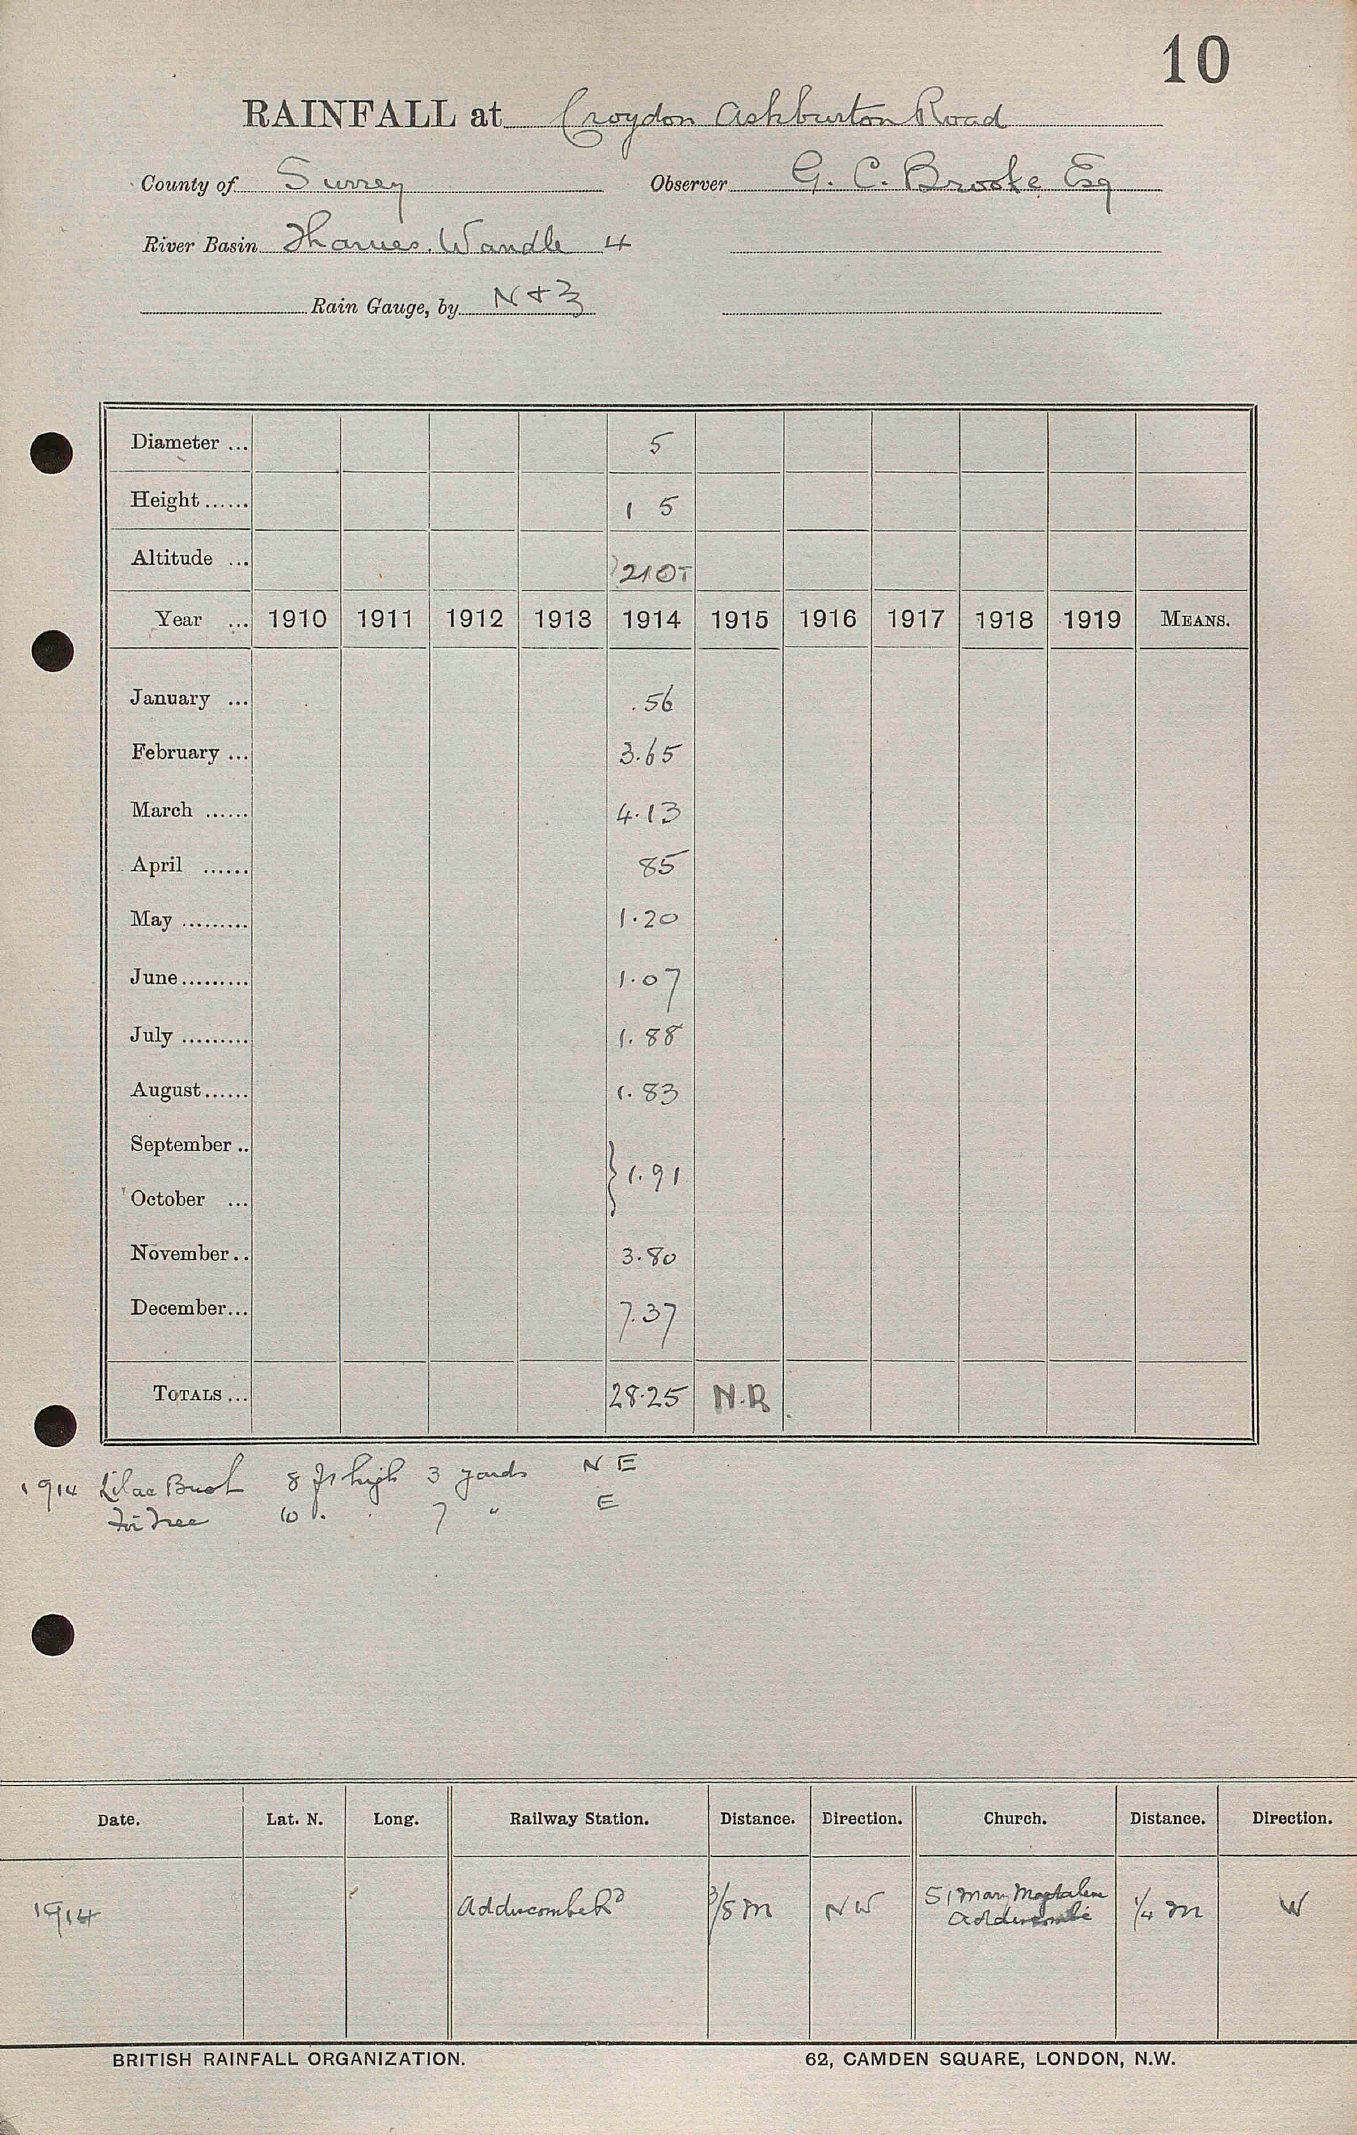 10
RAINFALL at Croydon Ashburton Road
County of Surrey Observer G. C. Brooke Esq
River Basin Thames. Wandle 4
Rain Gauge, by N + Z
Diameter ... 5
Height ...... 1 5
Altitude ... 210T
Year ... 1910 1911 1912 1913 1914 1915 1916 1917 1918 1919 MEANS.
January ... .56
February ... 3.65
March ...... 4.13
April ...... 85
May ......... 1.20
June ......... 1.07
July ......... 1.88
August ...... 1.83
September ..
} 1.91
October ...
November .. 3.80
December ... 7.37
TOTALS ... 28.25 N.R
1914 Lilac Bush 8 ft high 3 yards N E
Fir Tree 10 . . 7 " E
Date. Lat. N. Long. Railway Station. Distance. Direction. Church. Distance. Direction.
1914 Addiscombe Rd 3/8 m NW St Mary Magdalene 1/4 m W
Addiscombe
BRITISH RAINFALL ORGANIZATION. 62, CAMDEN SQUARE, LONDON, N.W.